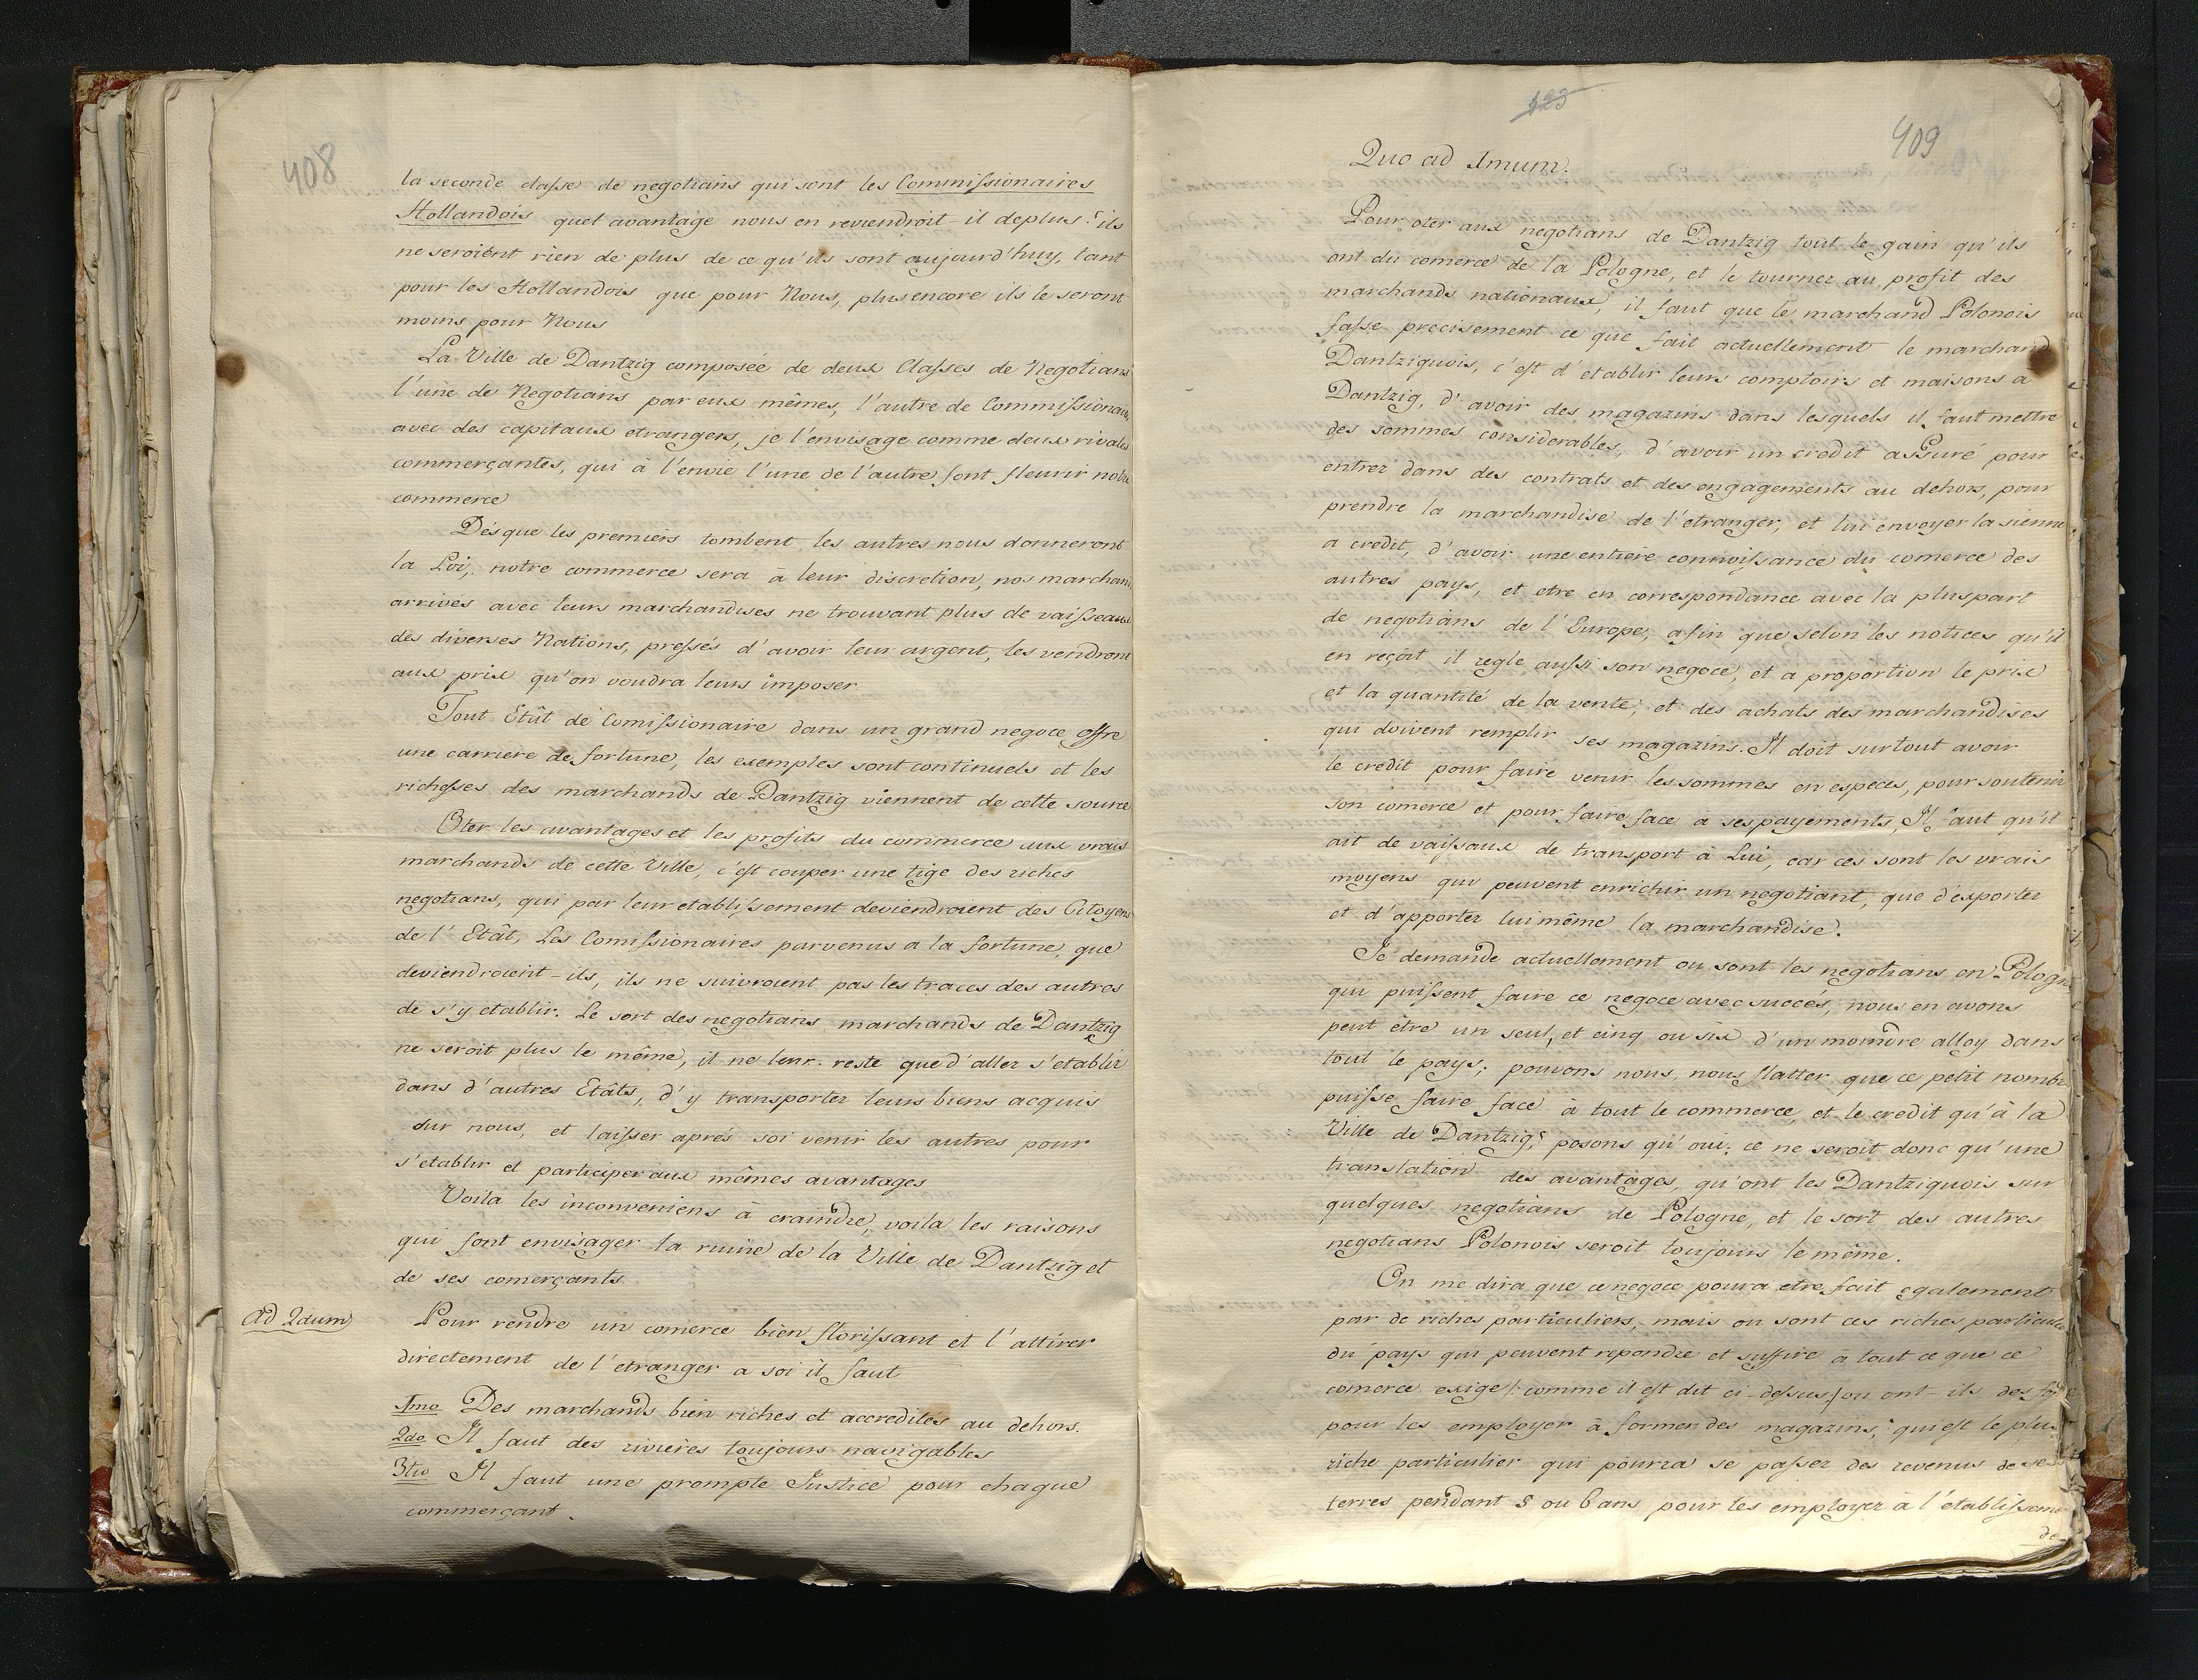 408
la seconde classe de negotians qui sont les Commissionaires
Hollandois quel avantage nous en reviendroit-il deplus? ils
ne seroient rien de plus de ce qu'ils sont aujourd'huy, tant
pour les Hollandois que pour Nous, plus encore ils le seront
moins pour Nous
La Ville de Dantzig composée de deux Classes de Negotians
l'une de Negotians par eux mêmes, l'autre de Commissionaires
avec des capitaux etrangers, je l'envisage comme deux rivales
commerçantes, qui à l'envie l'une de l'autre font fleurir notre
commerce
Dés que les premiers tombent les autres nous donneront
la Loi, notre commerce sera à leur discretion, nos marchans
arrivés avec leurs marchandises ne trouvant plus de vaisseaux
des diverses Nations, pressés d'avoir leur argent, les vendront
aux prix qu'on voudra leurs imposer
Tout Etât de Comissionaire dans un grand negoce offre
une carriere de fortune, les exemples sont continuels et les
richesses des marchands de Dantzig viennent de cette source
Oter les avantages et les profits du commerce aux vrais
marchands de cette Ville, c'est couper une tige des riches
negotians, qui par leur etablissement deviendroient des Citoyens
de l'Etât, Les Comissionaires parvenus a la fortune, que
deviendroient-ils, ils ne suivroient pas les traces des autres
de s'y etablir. Le sort des negotians marchands de Dantzig
ne seroit plus le même, il ne leur reste que d'aller s'etablir
dans d'autres Etâts, d'y transporter leurs biens acquis
sur nous, et laisser aprés soi venir les autres pour
s'etablir et participer aux mêmes avantages
Voila les inconveniens à craindre, voila les raisons
qui font envisager la ruine de la Ville de Dantzig et
de ses comerçants
Ad 2dum
Pour rendre un comerce bien florissant et l'attirer
directement de l'etranger a soi il faut
1mo Des marchands bien riches et accredités au dehors.
2do Il faut des rivieres toujours navigables
3tio Il faut une prompte Justice pour chaque
commerçant.
423
409
Quo ad 1mum.
Pour oter aux negotians de Dantzig tout le gain qu'ils
ont du comerce de la Pologne, et le tourner au profit des
marchands nationaux, il faut que le marchand Polonois
fasse precisement ce que fait actuellement le marchand
Dantziquois, c'est d'etablir leurs comptoirs et maisons a
Dantzig, d'avoir des magazins dans lesquels il faut mettre
des sommes considerables, d'avoir un credit assuré pour
entrer dans des contrats et des engagements au dehors, pour
prendre la marchandise de l'etranger, et lui envoyer la sienne
a credit, d'avoir une entiere connoissance du comerce des
autres pays, et etre en correspondance avec la pluspart
de negotians de l'Europe, afin que selon les notices qu'il
en reçoit il regle aussi son negoce, et a proportion le prix
et la quantité de la vente, et des achats des marchandises
qui doivent remplir ses magazins. Il doit surtout avoir
le credit pour faire venir les sommes en especes, pour soutenir
son comerce et pour faire face a ses payements, Il faut qu'il
ait de vaissaux de transport à Lui, car ces sont les vrais
moyens qui peuvent enrichir un negotiant, que d'exporter
et d'apporter lui même la marchandise.
Je demande actuellement ou sont les negotians en Pologne
qui puissent faire ce negoce avec succés, nous en avons
peut être un seul, et cinq ou six d'un moindre alloy dans
tout le pays; pouvons nous, nous flatter que ce petit nombre
puisse faire face à tout le commerce, et le credit qu'à la
Ville de Dantzig? posons qu'oui; ce ne seroit donc qu'une
translation des avantages, qu'ont les Dantziquois sur
quelques negotians de Pologne, et le sort des autres
negotians Polonois seroit toujours le même.
On me dira que ce negoce poura etre fait egalement
par de riches particuliers, mais ou sont ces riches particuliers
du pays qui peuvent repondre et suffire à tout ce que ce
comerce exige /: comme il est dit ci-dessus/ ou ont-ils des
pour les employer à former des magazins; qui est le plus
riche particulier qui pourra se passer des revenus de ses
terres pendant 5 ou 6 ans pour les employer à l'etablissement
de